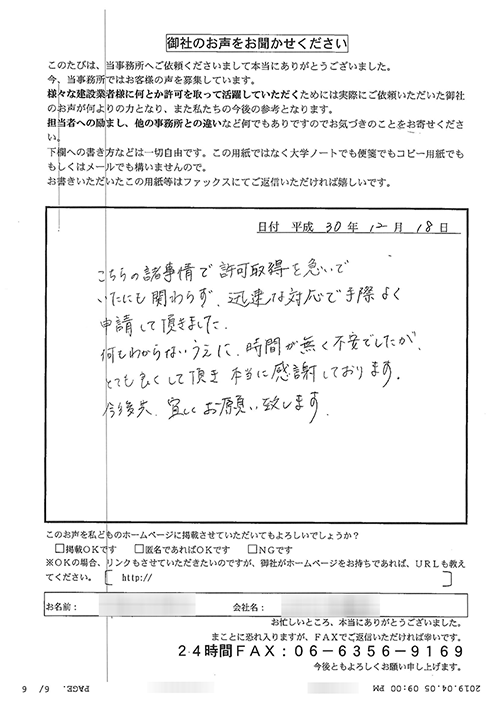 御社のお声をお聞かせください
このたびは、当事務所へご依頼くださいまして本当にありがとうございました。
今、当事務所ではお客様の声を募集しています。
様々な建設業者様に何とか許可を取って活躍していただくためには実際にご依頼いただいた御社
のお声が何よりの力となり、また私たちの今後の参考となります。
担当者への励まし、他の事務所との違いなど何でもありですのでお気づきのことをお寄せくださ
い。
下欄への書き方などは一切自由です。この用紙ではなく大学ノートでも便箋でもコピー用紙でも
もしくはメールでも構いませんので。
お書きいただいたこの用紙等はファックスにてご返信いただければ嬉しいです。
日付 平成 30 年 12 月 18 日
こちらの諸事情で許可取得を急いで
いたにも関わらず、迅速な対応で手際よく
申請して頂きました。
何もわからないうえに、時間が無く不安でしたが、
とても良くして頂き本当に感謝しております。
今後共、宜しくお願い致します。
このお声を私どものホームページに掲載させていただいてもよろしいでしょうか?
□掲載OKです □匿名であればOKです □NGです
※OKの場合、リンクもさせていただきたいのですが、御社がホームページをお持ちであれば、URLも教え
てください。 [ http:// ]
お名前: 会社名:
お忙しいところ、本当にありがとうございました。
まことに恐れ入りますが、FAXでご返信いただければ幸いです。
24時間FAX:06-6356-9169
今後ともよろしくお願い申し上げます。
2019.04.05 09:00 PM PAGE. 6/ 6